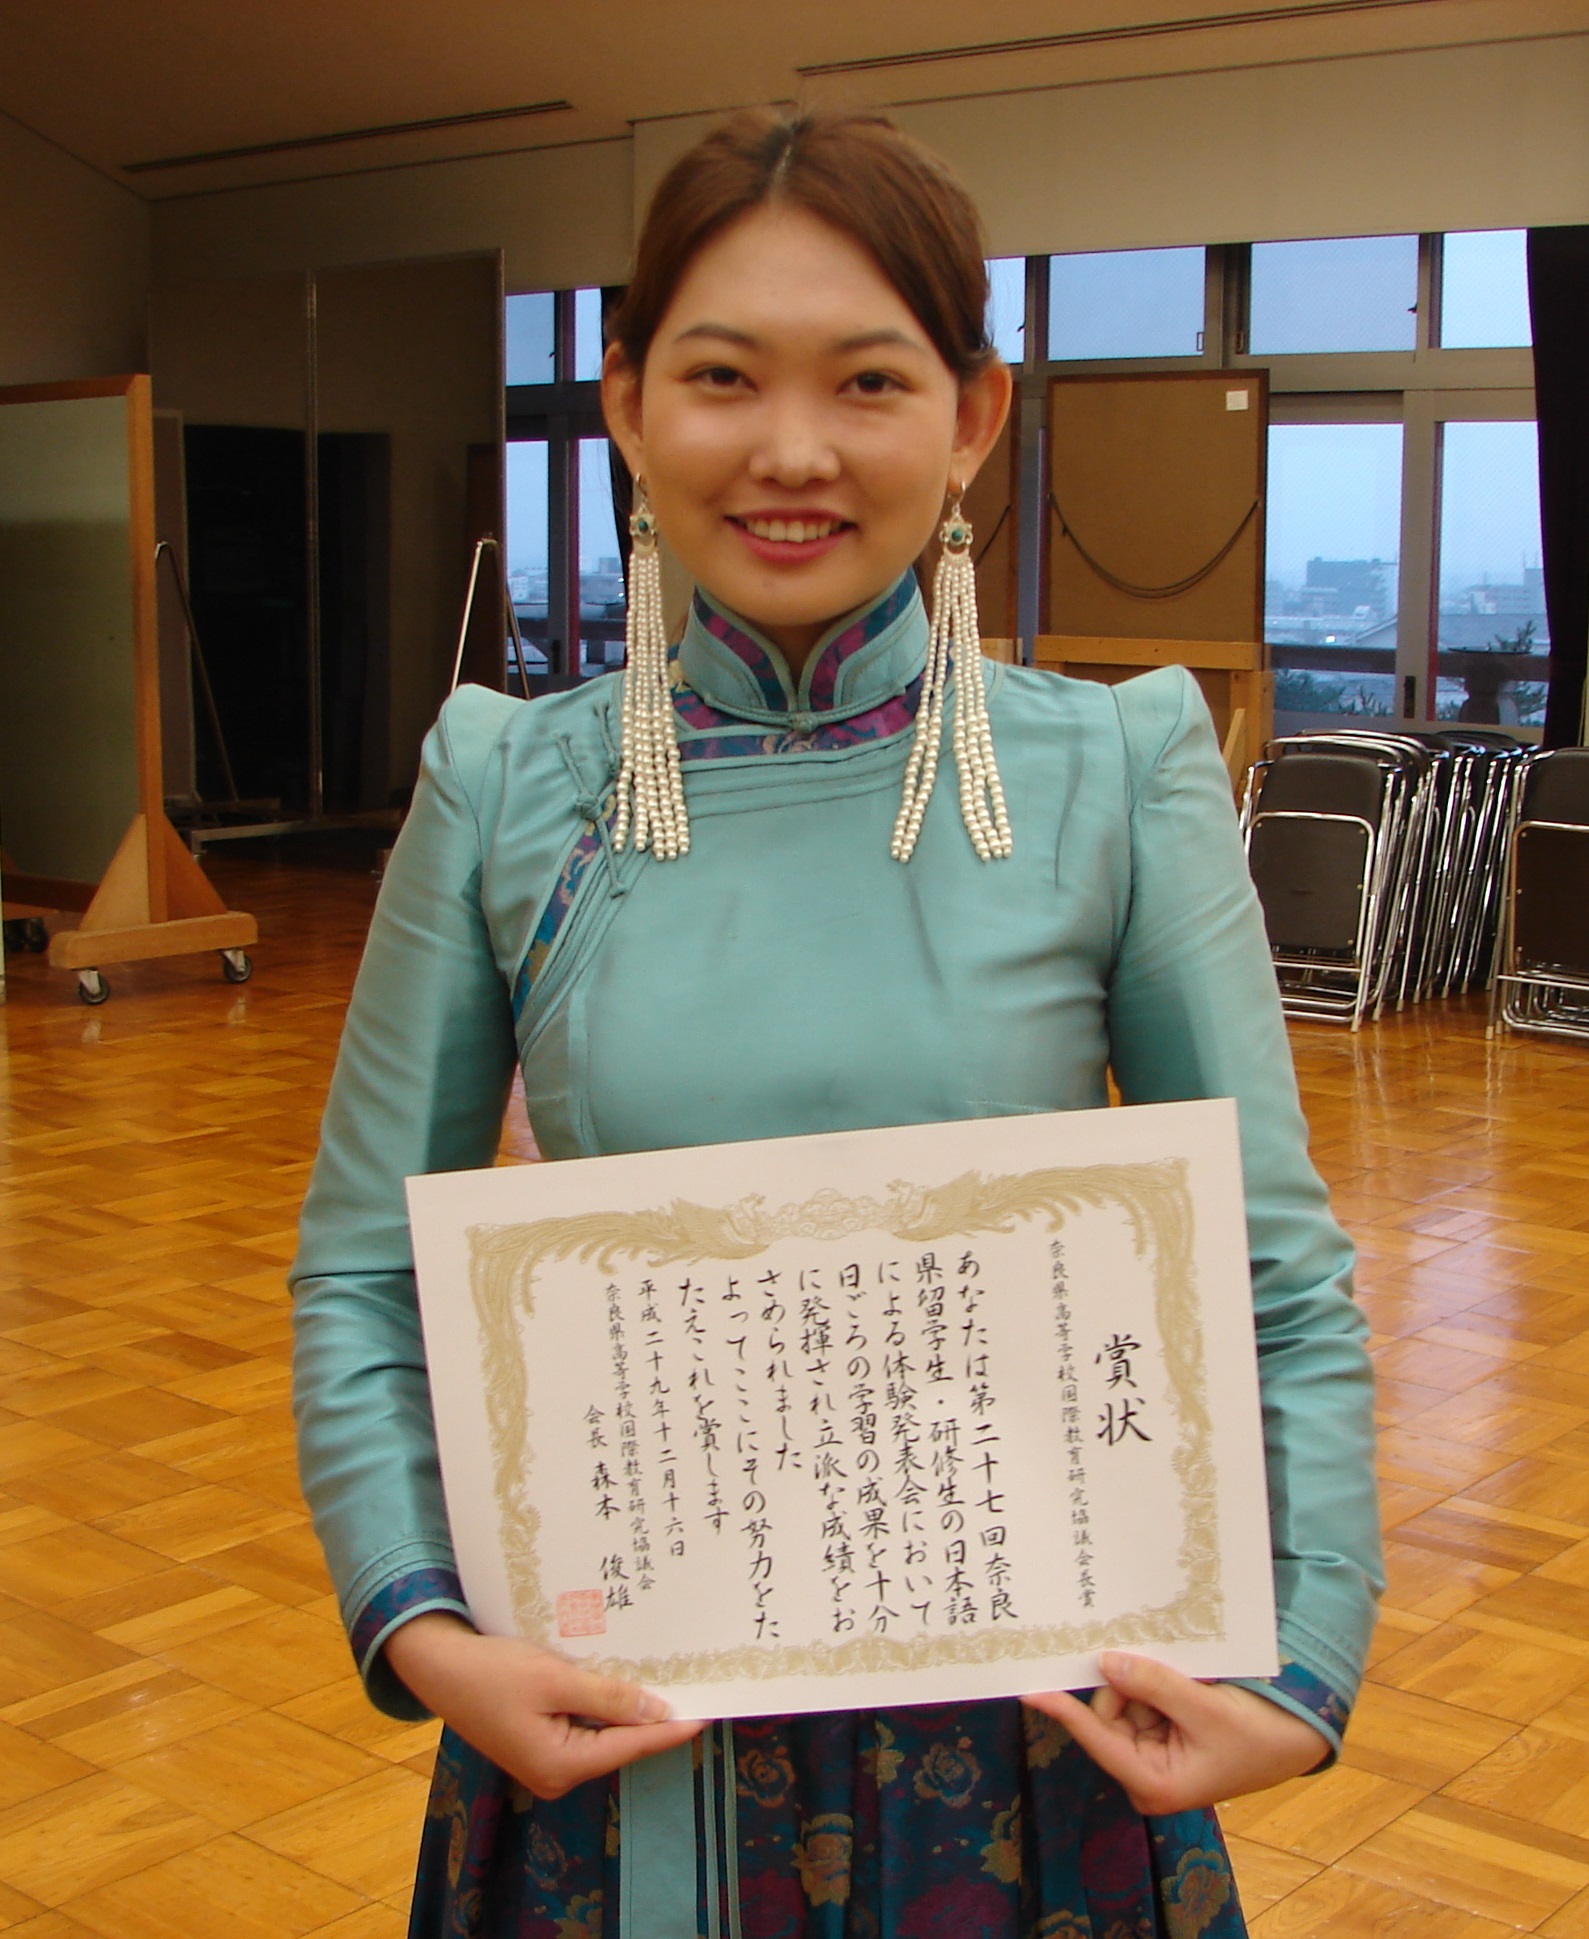 賞状
奈良県高等学校国際教育研究協議会長賞
あなたは第二十七回奈良
県留学生・研修生の日本語
による体験発表会において
日ごろの学習の成果を十分
に発揮され立派な成績をお
さめられました
よってここにその努力をた
たえこれを賞します
平成二十九年十二月十六日
奈良県高等学校国際教育研究協議会
会長 森本 俊雄